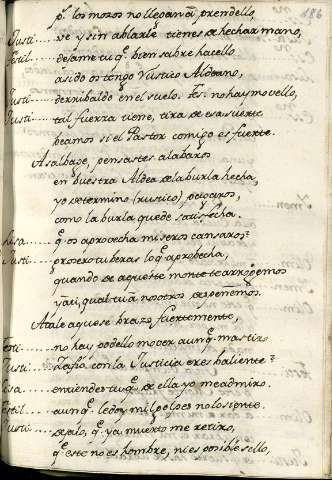 186
pr. los moros no llegan a prendello,
Justi..... ve y sin ablarle tienes de hechar mano,
Fesil..... dejame tu q. bien sabre hacello
asido os tengo Rustico Aldeano,
Justi..... derribaldo en el suelo. Fes. no hay movello,
Justi..... tal fuerza tiene, tira de esa suerte
beamos si el Pastor comigo es fuerte.
Asaltase, pensastes alabaros
en vuestra Aldea de la burla hecha,
yo determino (rustico)
como la burla quede satisfecha.
Elisa..... q. os aprobecha miseros cansaros,
Justi..... q. aprobecha,
quando de aqueste monte te arrojemos
y au, qual tu a nosotros despeñemos.
Atale aquese brazo fuertemente,
Fesi..... no hay podello mover aunq. mas tiro
Justi..... con la Justicia eres baliente
Elisa..... entiendes tu q. de ella yo me admiro.
Fesil..... aunq. le doy mil golpes no lo siente.
Justi..... dejalo, q. ya muerto me retiro,
q. este no es hombre, ni es posible sello,